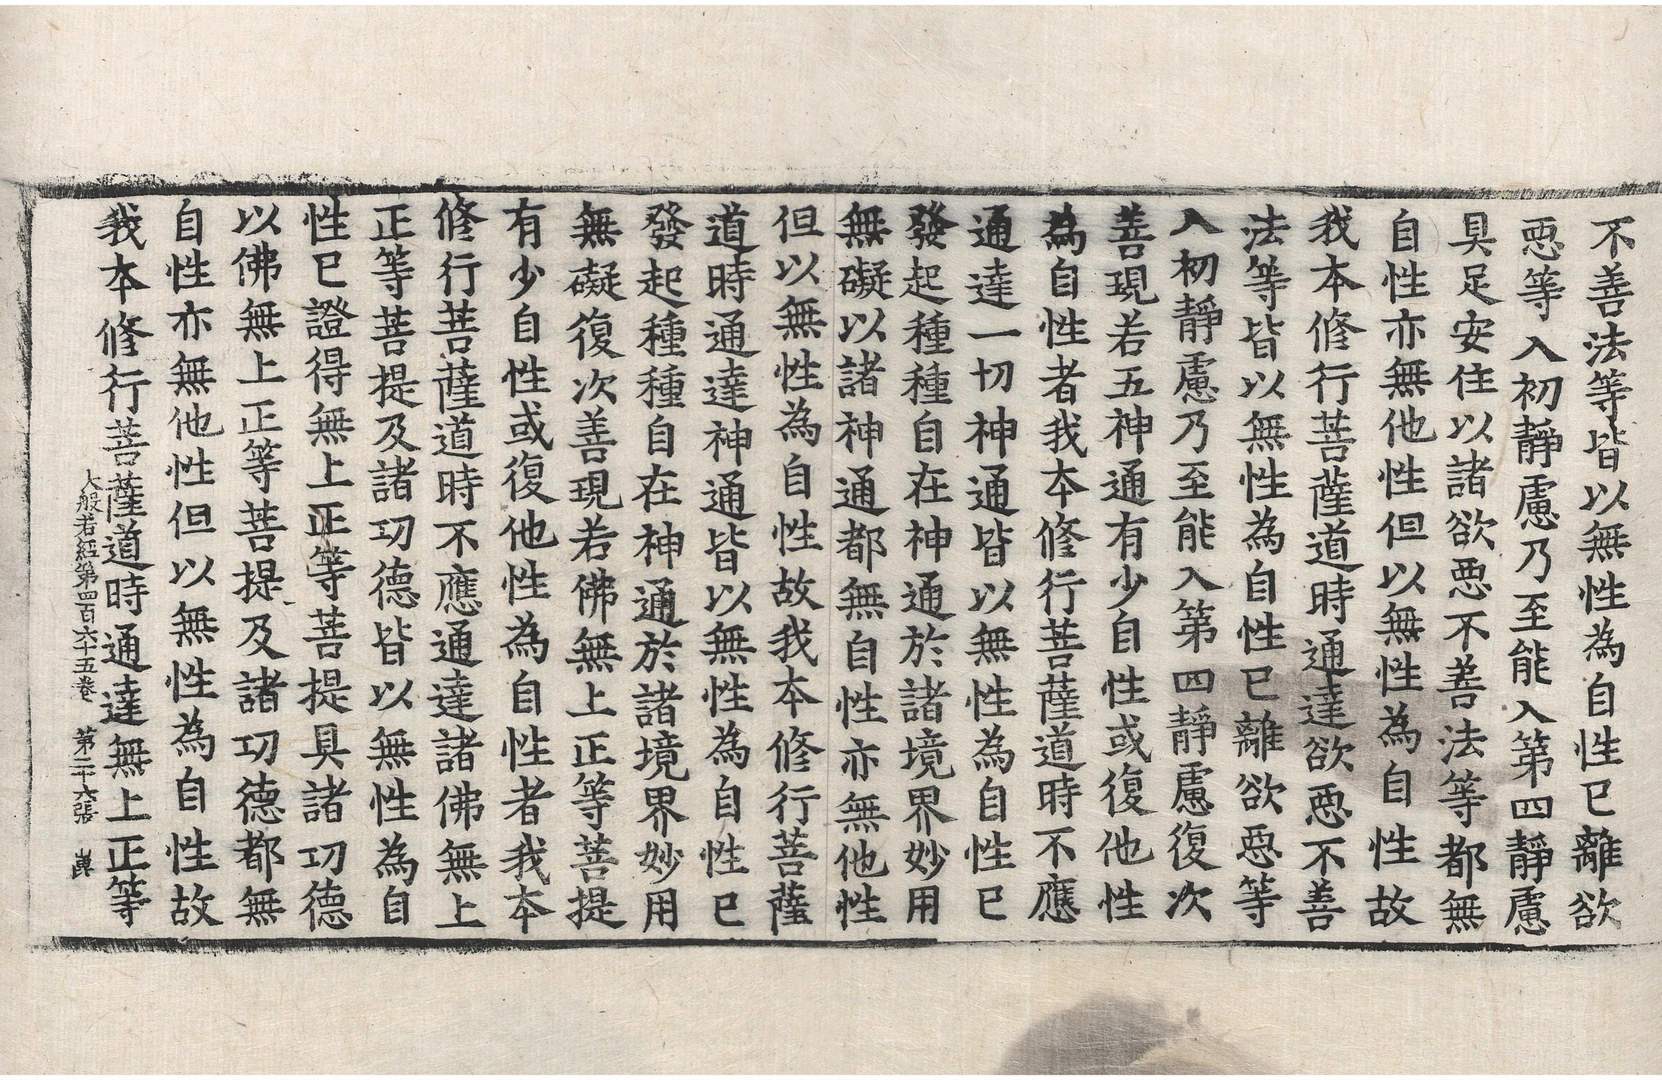 不善法等皆以無性為自性已離欲
悪等入初靜慮乃至能入第四靜慮
具足安住以諸欲悪不善法等都無
自性亦無他性但以無性為自性故
我本修行菩薩道時通達欲悪不善
法等皆以無性為自性已離欲悪等
入初靜慮乃至能入第四靜慮復次
善現若五神通有少自性或復他性
為自性者我本修行菩薩道時不應
通達一切神通皆以無性為自性已
發起種種自在神通於諸境界妙用
無礙以諸神通都無自性亦無他性
但以無性為自性故我本修行菩薩
道時通達神通皆以無性為自性已
發起種種自在神通於諸境界妙用
無礙復次善現若佛無上正等菩提
有少自性或復他性為自性者我本
修行菩薩道時不應通達諸佛無上
正等菩提及諸功德皆以無性為自
性已證得無上正等菩提具諸功德
以佛無上正等菩提及諸功德都無
自性亦無他性但以無性為自性故
我本修行菩薩道時通達無上正等
大般若經第四百六十五卷 第二十六張